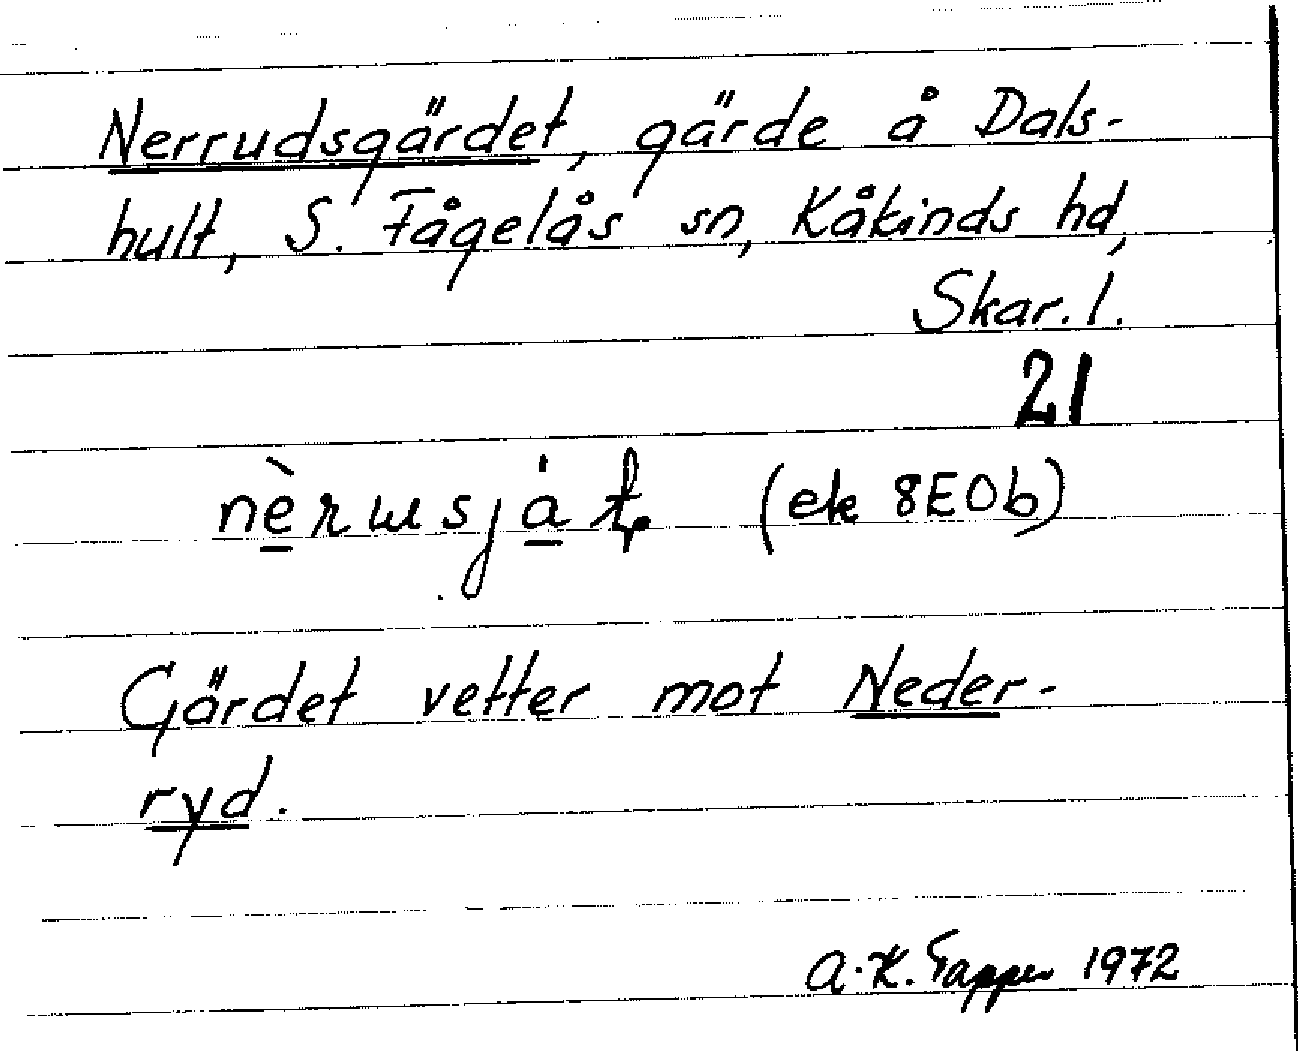 Nerrudsgärdet, gärde å Dals-
hult, S. Fågelås sn, Kåkinds hd,
Skar. l.
21
(ek 8E0b)
Gärdet vetter mot Neder-
ryd.
A.K. Tapper 1972